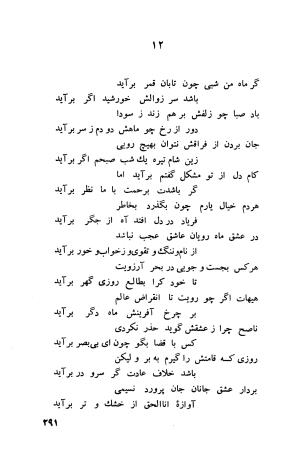 ۱۲
گر ماه من شبی چون تابان قمر برآید
باشد سر زوالش خورشید اگر برآید
باد صبا چو زلفش برهم زند ز سودا
دور از رخ چو ماهش دودم ز سر برآید
جان بردن از فراقش نتوان بهیچ رویی
زین شام تیره یك شب صبحم اگر برآید
کام دل از تو مشکل گفتم برآید اما
گر باشدت برحمت با ما نظر برآید
هردم خیال یارم چون بگذرد بخاطر
فریاد در دل افتد آه از جگر برآید
در عشق ماه رویان عاشق عجب نباشد
از نام و ننگ و تقوی و ز خواب و خور برآید
هرکس بجست و جویی در بحر آرزویت
تا خود کرا بطالع روزی گهر برآید
هیهات اگر چو رویت تا انقراض عالم
بر چرخ آفرینش ماه دگر برآید
ناصح چرا ز عشقش گوید حذر نکردی
کس با قضا بگو چون ای بی‌بصر برآید
روزی که قامتش را گیرم به بر و لیکن
باشد خلاف عادت گر سرو در برآید
بردار عشق جانان جان پرورد نسیمی
آوازهٔ اناالحق از خشك و تر برآید
۲۹۱